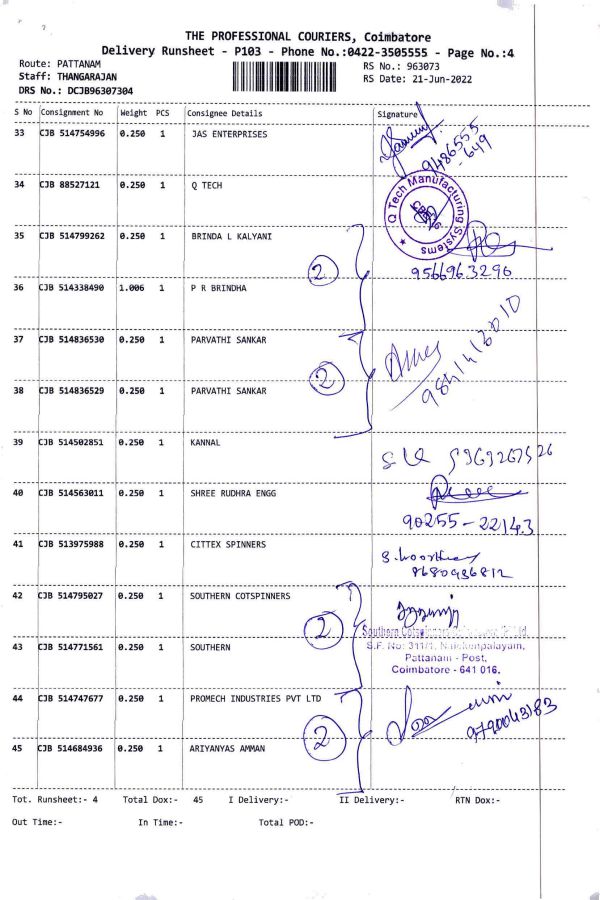 THE PROFESSIONAL COURIERS, Coimbatore
Delivery Runsheet - P103 - Phone No.:0422-3505555 - Page No.:4
Route: PATTANAM
RS No.: 963073
Staff: THANGARAJAN
RS Date: 21-Jun-2022
DRS No.: DCJB96307304
S No Consignment No Weight PCS Consignee Details Signature
33 CJB 514754996 0.250 1 JAS ENTERPRISES
9486555
-649
34 CJB 88527121 0.250 1 Q TECH
Q Tech Manufacturing Systems
35 CJB 514799262 0.250 1 BRINDA L KALYANI
2
9566963296
36 CJB 514338490 1.006 1 P R BRINDHA
37 CJB 514836530 0.250 1 PARVATHI SANKAR
2
38 CJB 514836529 0.250 1 PARVATHI SANKAR
39 CJB 514502851 0.250 1 KANNAL
40 CJB 514563011 0.250 1 SHREE RUDHRA ENGG
90255-22143
41 CJB 513975988 0.250 1 CITTEX SPINNERS
8680936812
42 CJB 514795027 0.250 1 SOUTHERN COTSPINNERS
2
43 CJB 514771561 0.250 1 SOUTHERN
S.F. No: 311/1, Naickenpalayam,
Pattanam - Post,
Coimbatore - 641 016.
44 CJB 514747677 0.250 1 PROMECH INDUSTRIES PVT LTD
9790043183
2
45 CJB 514684936 0.250 1 ARIYANYAS AMMAN
Tot. Runsheet:- 4 Total Dox:- 45 I Delivery:- II Delivery:- RTN Dox:-
Out Time:- In Time:- Total POD:-